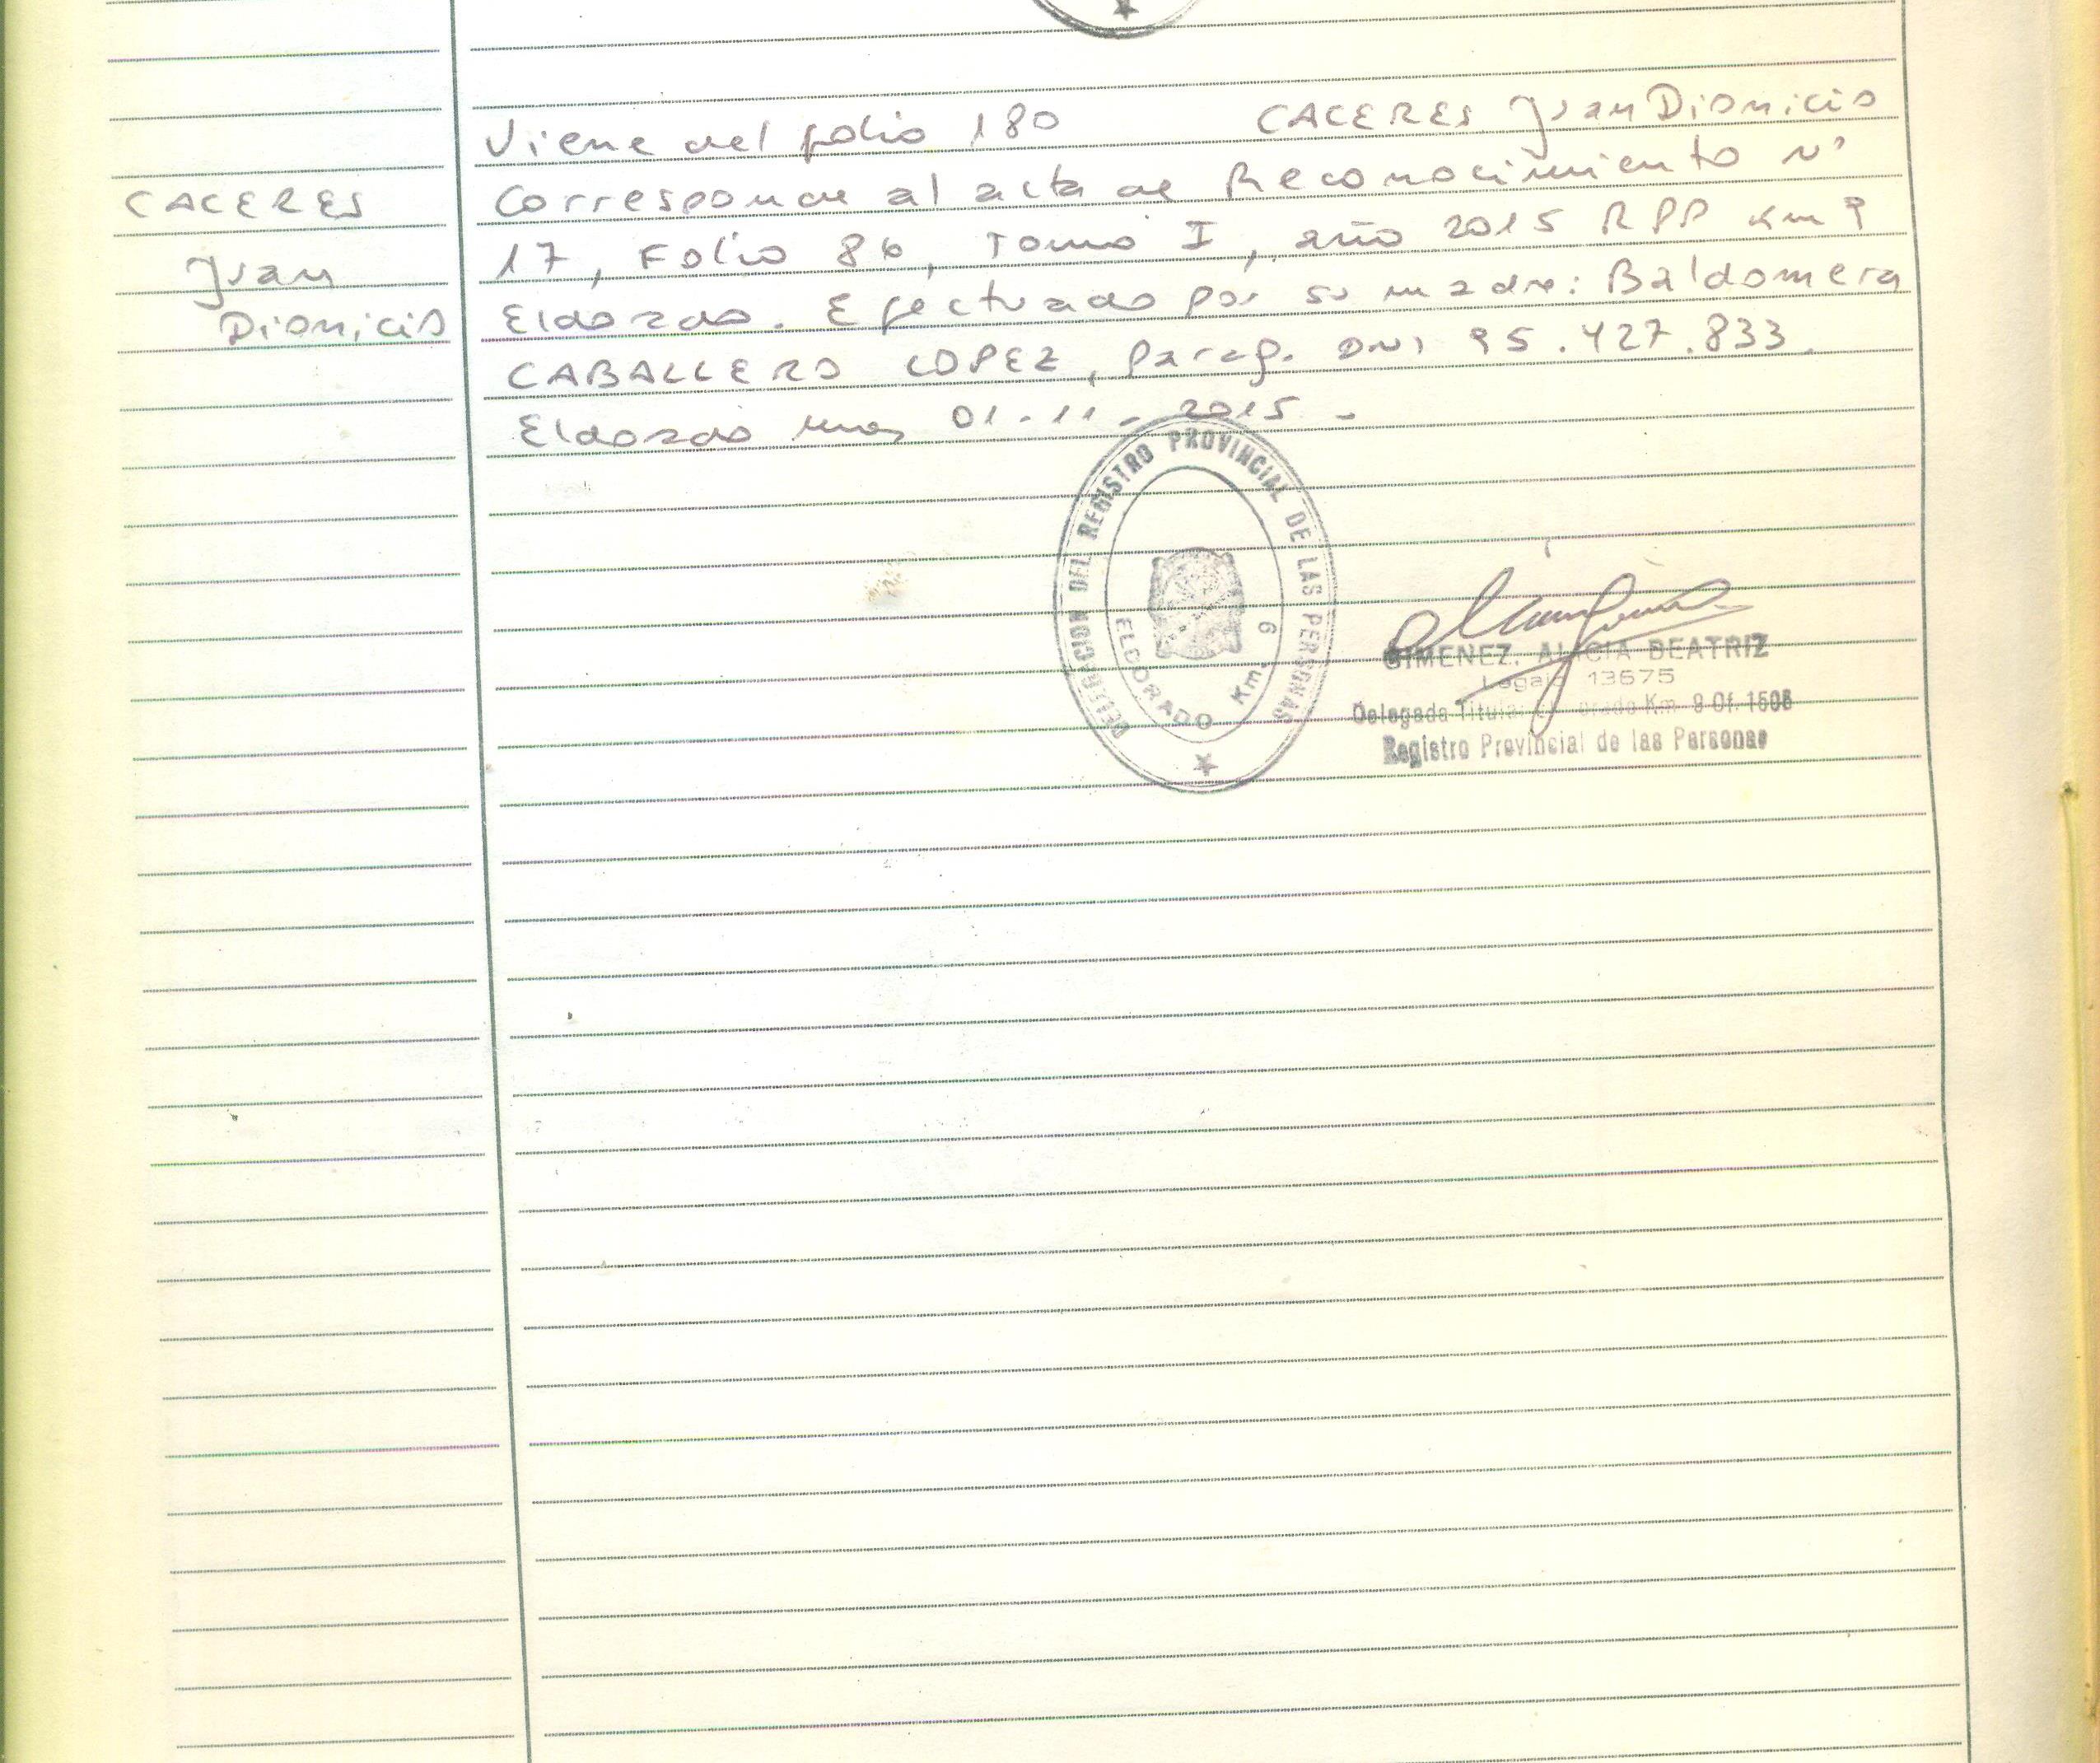 CACERES
Juan
Dionicio
Viene del folio 180 CACERES Juan Dionicio
Corresponde al acta de Reconocimiento N°
17, Folio 86, Tomo I, año 2015 RPP Km 9
Eldorado. Efectuado por su madre: Baldomera
CABALLERO LOPEZ, Parag. DNI 95.427.833.
Eldorado 01-11-2015-
DELEGACION DEL REGISTRO PROVINCIAL DE LAS PERSONAS
ELDORADO Km. 9
GIMENEZ, ALICIA BEATRIZ
Legajo 13675
Delegada Titular Eldorado Km 9 Of. 1506
Registro Provincial de las Personas